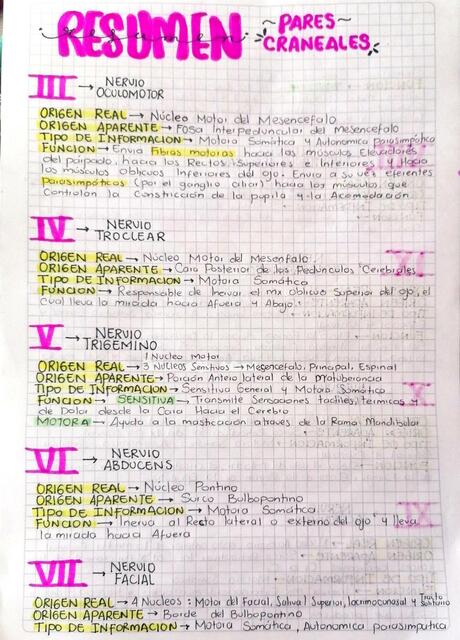 RESUMEN ~PARES~
resumen CRANEALES
III → NERVIO
OCULOMOTOR
ORIGEN REAL → Núcleo Motor del Mesencefalo
ORIGEN APARENTE → Fosa Interpeduncular del Mesencefalo
TIPO DE INFORMACION → Motora Somática y Autonomica parasimpática
FUNCION → Envia Fibras motoras hacia los músculos Elevadores
del párpado, hacia los Rectos, Superiores e Inferiores y hacia
los músculos oblicuos Inferiores del ojo. Envia a su vez eferentes
parasimpáticas (por el ganglio ciliar) hacia los músculos que
Controlan la Constricción de la pupila y la Acomodación
IV → NERVIO
TROCLEAR
ORIGEN REAL → Núcleo Motor del Mesenfalo.
ORIGEN APARENTE → Cara Posterior de los Pedúnculos Cerebrales
TIPO DE INFORMACION → Motora Somática
FUNCION → Responsable de Inervar el mx oblicuo Superior del ojo, el
Cual lleva la mirada hacia Afuera y Abajo.
V → NERVIO
TRIGEMINO
1 Nucleo motor
ORIGEN REAL → 3 Nucleos Sensitivos → Mesencefalo, Principal, Espinal
ORIGEN APARENTE → Porción Antero lateral de la protuberancia
TIPO DE INFORMACION → Sensitiva General y Motora Somática
FUNCION → SENSITIVA → Transmite Sensaciones tactiles, termicas y
de Dolor desde la Cara Hacia el Cerebro
MOTORA → Ayuda a la masticación atraves de la Rama Mandibular
VI → NERVIO
ABDUCENS
ORIGEN REAL → Núcleo Pontino
ORIGEN APARENTE → Surco Bulbopontino
TIPO DE INFORMACION → Motora Somática
FUNCION → Inerva al Recto lateral o externo del ojo y lleva
la mirada hacia Afuera
VII → NERVIO
FACIAL
ORIGEN REAL → 4 Nucleos: Motor del Facial, Salival Superior, lacrimoconasal y Tracto Solitario
ORIGEN APARENTE → Borde del Bulbopontino
TIPO DE INFORMACION → Motora Somática, Autonomica parasimpatica